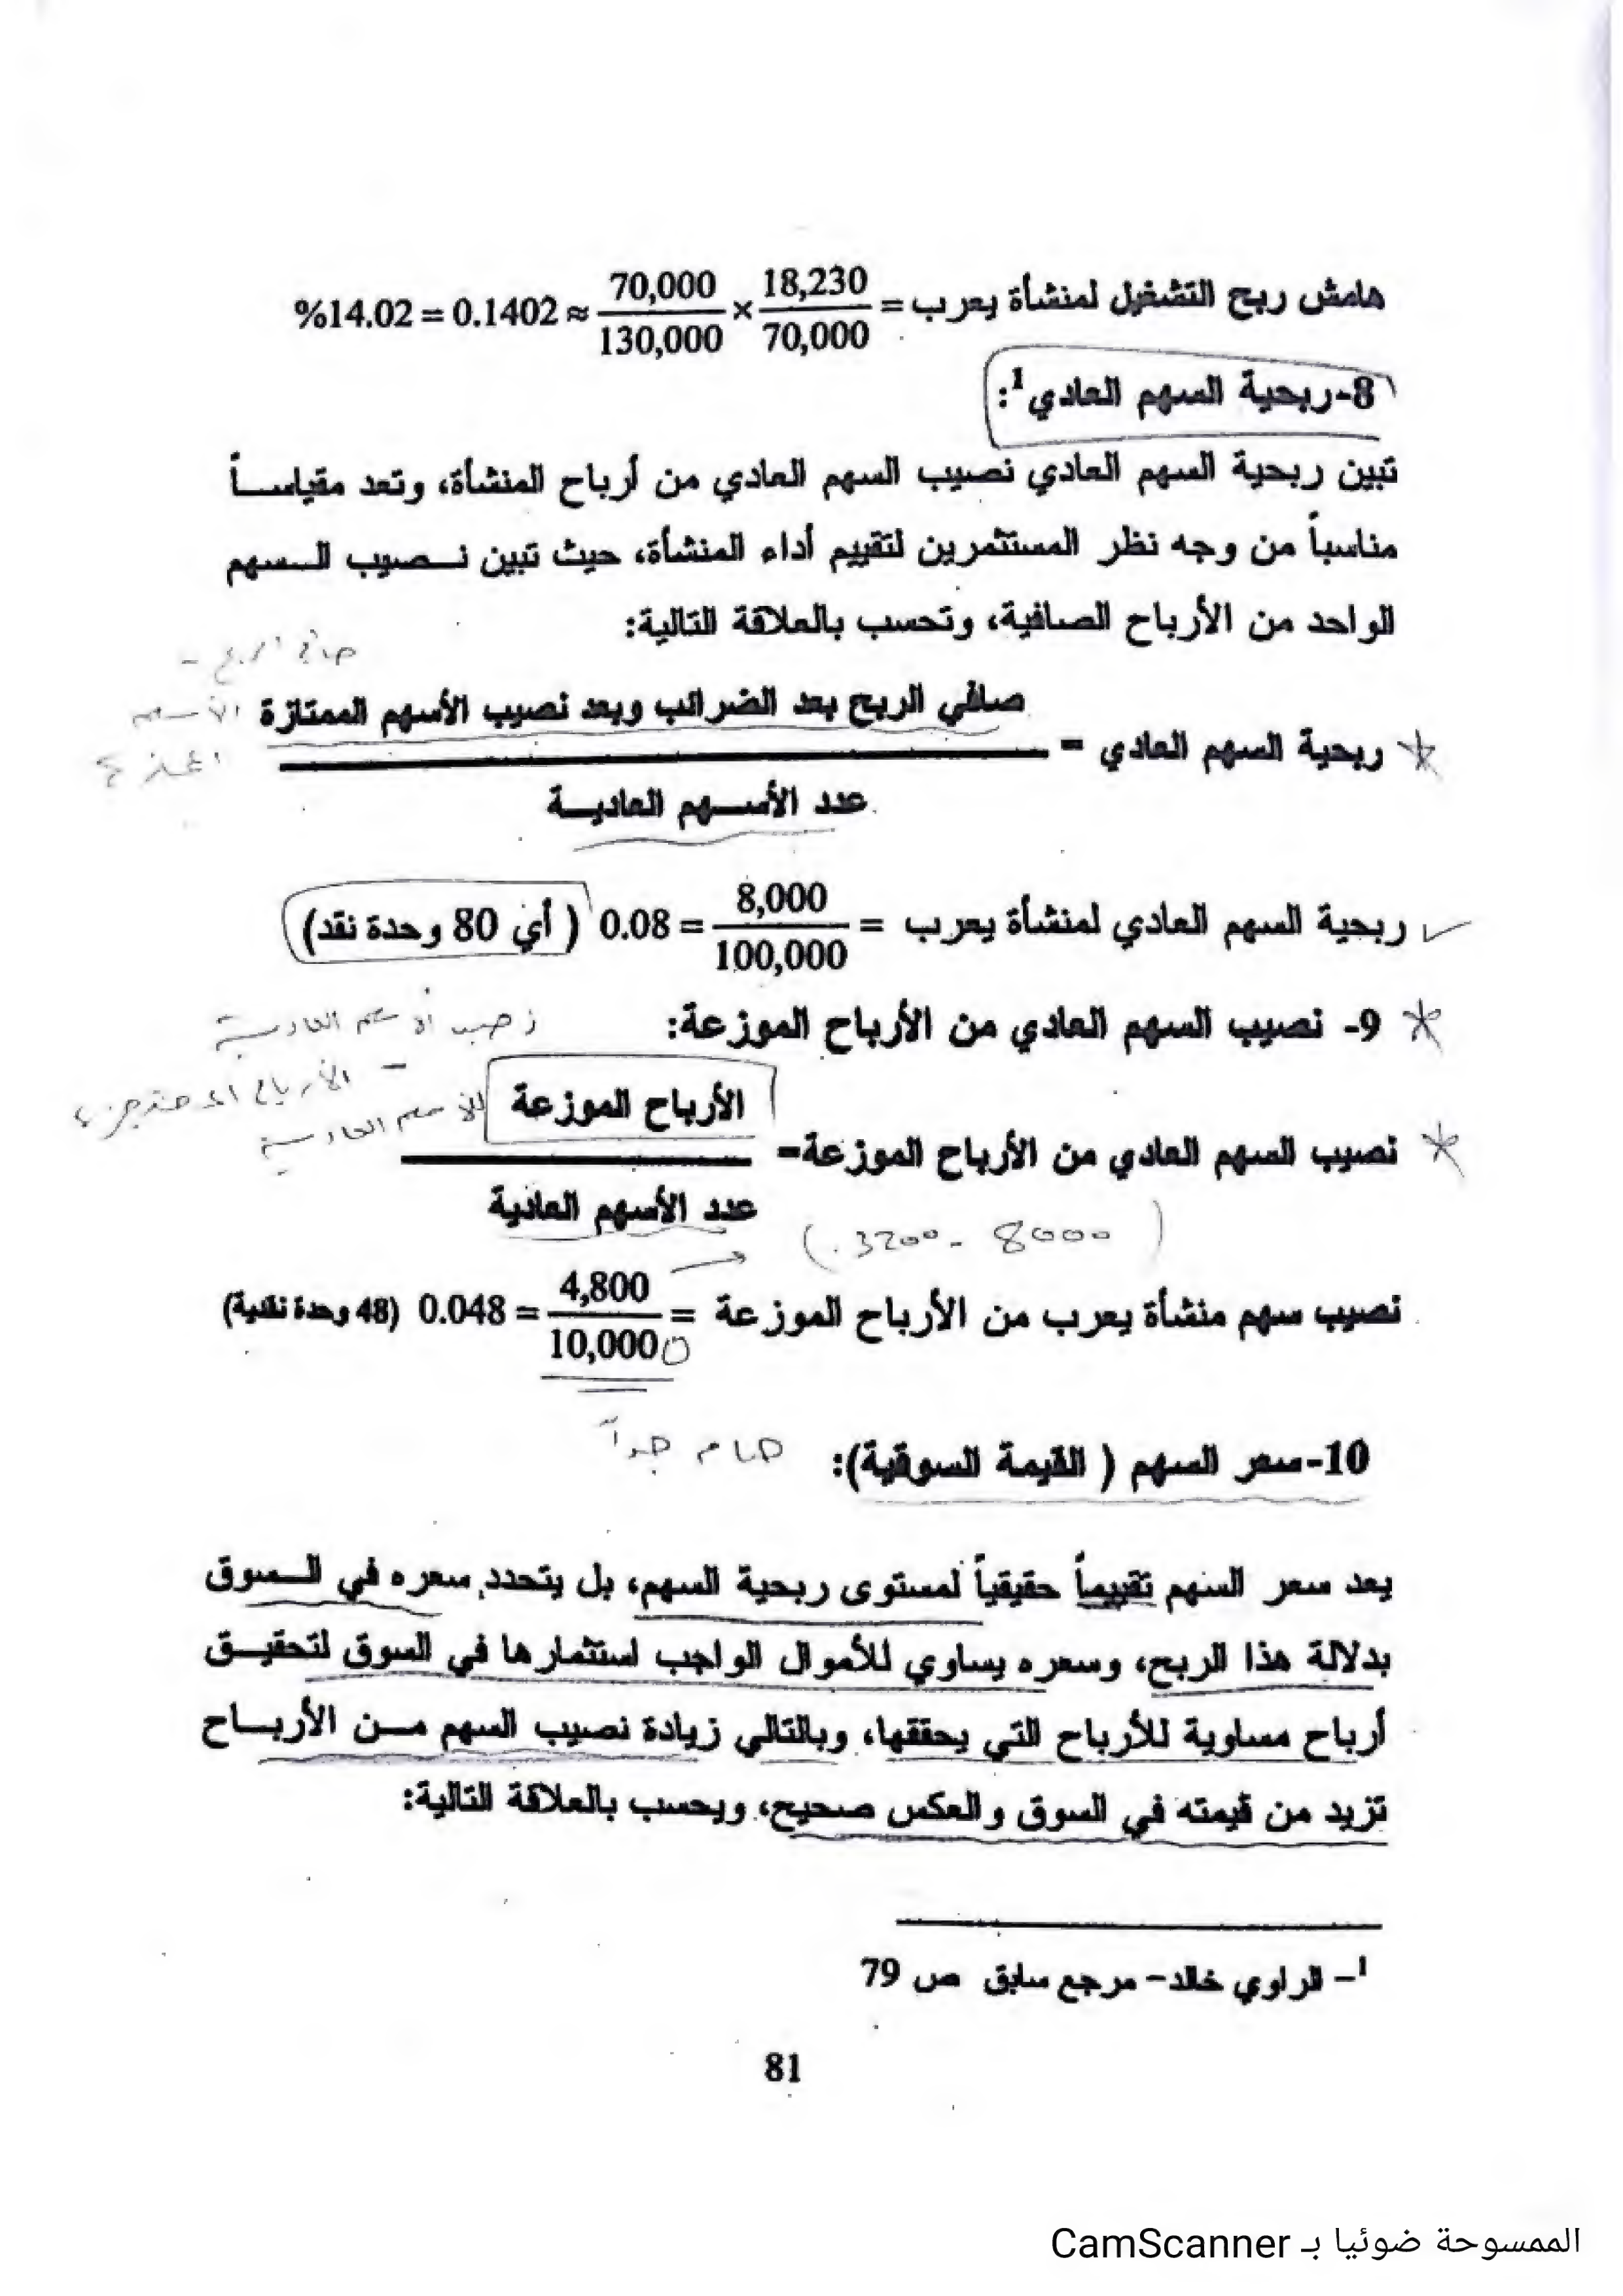 هامش ربح التشغيل لمنشأة يعرب = 18,230/70,000 × 70,000/130,000 ≈ 0.1402 = 14.02%
8-ربحية السهم العادي1:
تبين ربحية السهم العادي نصيب السهم العادي من أرباح المنشأة، وتعد مقياساً
مناسباً من وجه نظر المستثمرين لتقييم أداء المنشأة، حيث تبين نصيب السهم
الواحد من الأرباح الصافية، وتحسب بالعلاقة التالية:
صافي الربح -
صافي الربح بعد الضرائب وبعد نصيب الأسهم الممتازة الأسهم
ربحية السهم العادي =
عدد الأسهم العادية
ربحية السهم العادي لمنشأة يعرب = 8,000/100,000 = 0.08 ( أي 80 وحدة نقد)
9- نصيب السهم العادي من الأرباح الموزعة: نصيب الأسهم العادية
- الأرباح المحتجزة
الأرباح الموزعة للأسهم العادية
نصيب السهم العادي من الأرباح الموزعة=
عدد الأسهم العادية
(3200 - 8000)
نصيب سهم منشأة يعرب من الأرباح الموزعة = 4,800/10,0000 = 0.048 (48 وحدة نقدية)
10-سعر السهم ( القيمة السوقية): هام جداً
يعد سعر السهم تقييماً حقيقياً لمستوى ربحية السهم، بل يتحدد سعره في السوق
بدلالة هذا الربح، وسعره يساوي للأموال الواجب استثمارها في السوق لتحقيق
أرباح مساوية للأرباح التي يحققها، وبالتالي زيادة نصيب السهم من الأرباح
تزيد من قيمته في السوق والعكس صحيح، ويحسب بالعلاقة التالية:
1- الراوي خالد- مرجع سابق ص 79
81
الممسوحة ضوئيا بـ CamScanner